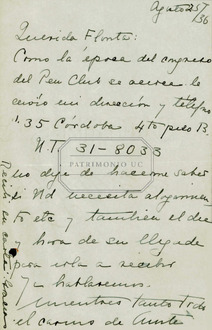 Agosto 25/36
Querida Flonta:
Como la época del congreso
del Pen Club se acerca le
envío mi dirección y teléfono
35 Córdoba 4to piso B.
U.T. 31-8033
PATRIMONIO UC
no deje de hacerme saber
si Ud necesita alojamien
to etc y tambien el dia
y hora de su llegada
para irla a recibir
y hablaremos.
mientras tanto todo
el cariño de
Recibí su carta